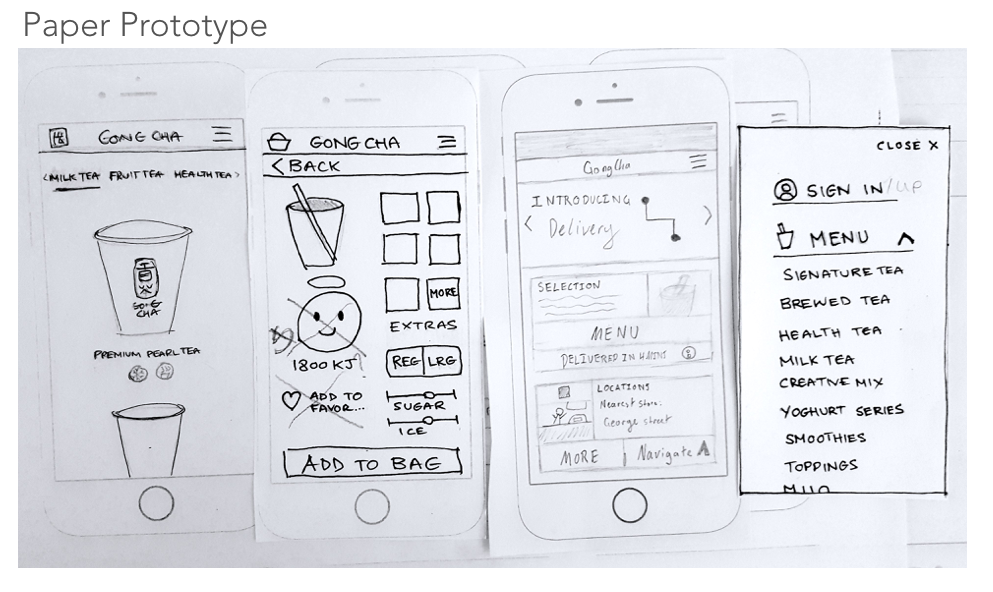 Paper Prototype
GONG CHA
<MILK TEA FRUIT TEA HEALTH TEA>
GONG
CHA
PREMIUM PEARL TEA
GONG CHA
< BACK
MORE
EXTRAS
1800 KJ?
REG LRG
ADD TO
FAVOR...
SUGAR
ICE
ADD TO BAG
GongCha
INTRODUCING
< Delivery >
SELECTION
MENU
DELIVERED IN
LOCATIONS
Nearest Store:
George street
MORE Navigate
CLOSE X
SIGN IN/UP
MENU
SIGNATURE TEA
BREWED TEA
HEALTH TEA
MILK TEA
CREATIVE MIX
YOGHURT SERIES
SMOOTHIES
TOPPINGS